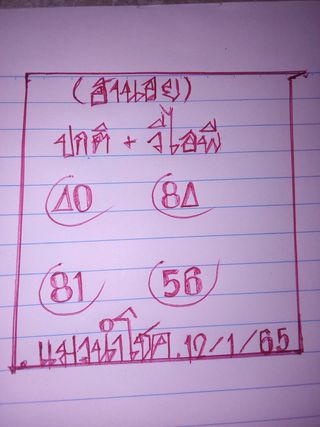 (ฮานอย)
ปกติ + วีไอพี
40 84
81 56
. แมวนำโชค.12/1/65